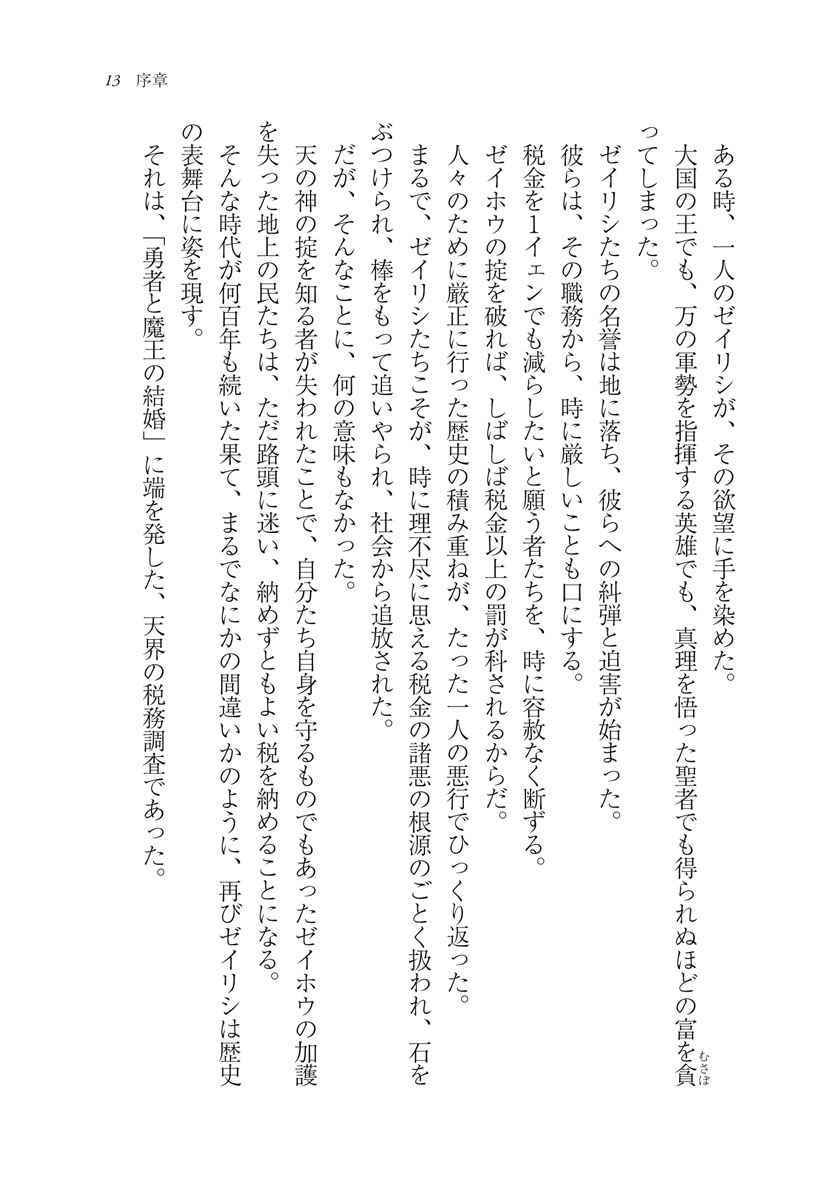 13 序章
ある時、一人のゼイリシが、その欲望に手を染めた。
大国の王でも、万の軍勢を指揮する英雄でも、真理を悟った聖者でも得られぬほどの富を貪
むさぼ
ってしまった。
ゼイリシたちの名誉は地に落ち、彼らへの糾弾と迫害が始まった。
彼らは、その職務から、時に厳しいことも口にする。
税金を1イェンでも減らしたいと願う者たちを、時に容赦なく断ずる。
ゼイホウの掟を破れば、しばしば税金以上の罰が科されるからだ。
人々のために厳正に行った歴史の積み重ねが、たった一人の悪行でひっくり返った。
まるで、ゼイリシたちこそが、時に理不尽に思える税金の諸悪の根源のごとく扱われ、石を
ぶつけられ、棒をもって追いやられ、社会から追放された。
だが、そんなことに、何の意味もなかった。
天の神の掟を知る者が失われたことで、自分たち自身を守るものでもあったゼイホウの加護
を失った地上の民たちは、ただ路頭に迷い、納めずともよい税を納めることになる。
そんな時代が何百年も続いた果て、まるでなにかの間違いかのように、再びゼイリシは歴史
の表舞台に姿を現す。
それは、「勇者と魔王の結婚」に端を発した、天界の税務調査であった。